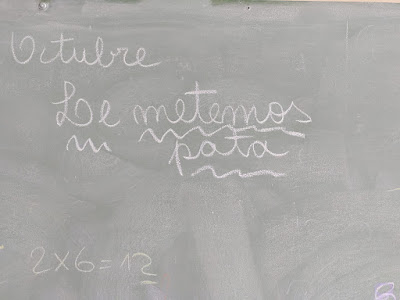 Octubre
Le metemos
pata
2x6=12